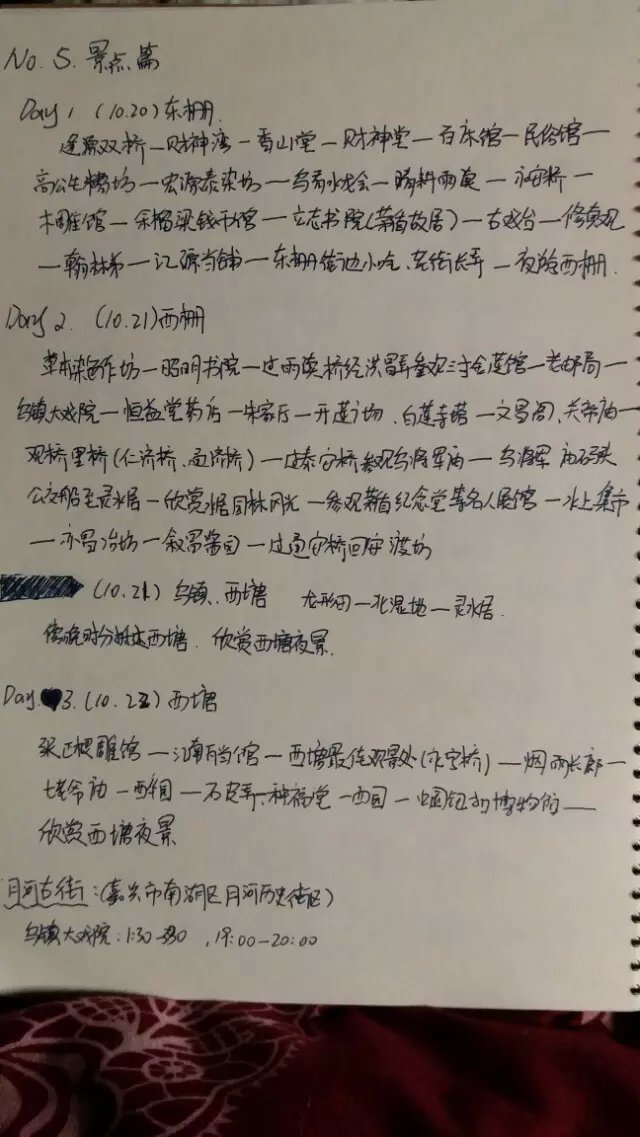 No. 5. 景点篇
Day 1 (10.20) 东栅.
逢源双桥—财神湾—香山堂—财神堂—百床馆—民俗馆—
高公生糟坊—宏源泰染坊—乌青水龙会—晴耕雨读—永安桥—
木雕馆—余榴梁钱币馆—立志书院(茅盾故居)—古戏台—修真观
—翰林第—汇源当铺—东栅街边小吃、 — 夜游西栅.
Day 2. (10.21)西栅
草木染色作坊—昭明书院—过雨读桥经洪昌弄参观三寸金莲馆—老邮局—
乌镇大戏院—恒益堂药店—朱家厅—升莲广场、白莲寺塔—文昌阁、关帝庙—
观桥里桥(仁济桥、通济桥)—过泰安桥参观乌将军庙—乌将军庙码头
公交船至灵水居—欣赏水居园林风光—参观茅盾纪念堂等名人展馆—水上集市
—亦昌冶坊—叙昌酱园—过通安桥回安渡坊
(10.21) 乌镇、西塘 龙形田—北湿地—灵水居.
傍晚时分抵达西塘. 欣赏西塘夜景.
Day 3. (10.22) 西塘
张正根雕馆—江南瓦当馆—西塘最佳观景处(永宁桥)—烟雨长廊—
七老爷庙—醉园—石皮弄—种福堂—西园—中国钮扣博物馆—
欣赏西塘夜景
月河古街:(嘉兴市南湖区月河历史街区)
乌镇大戏院: , 19:00-20:00